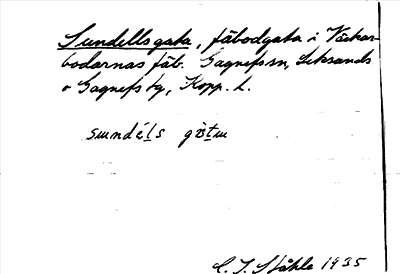 Sundellsgata, fäbodgata i Väckar-
bodarnas fäb. Gagnefs sn, Leksands
o Gagnefs tg, Kopp. l.
sundéls gö̀tu
C. I. Ståhle 1935